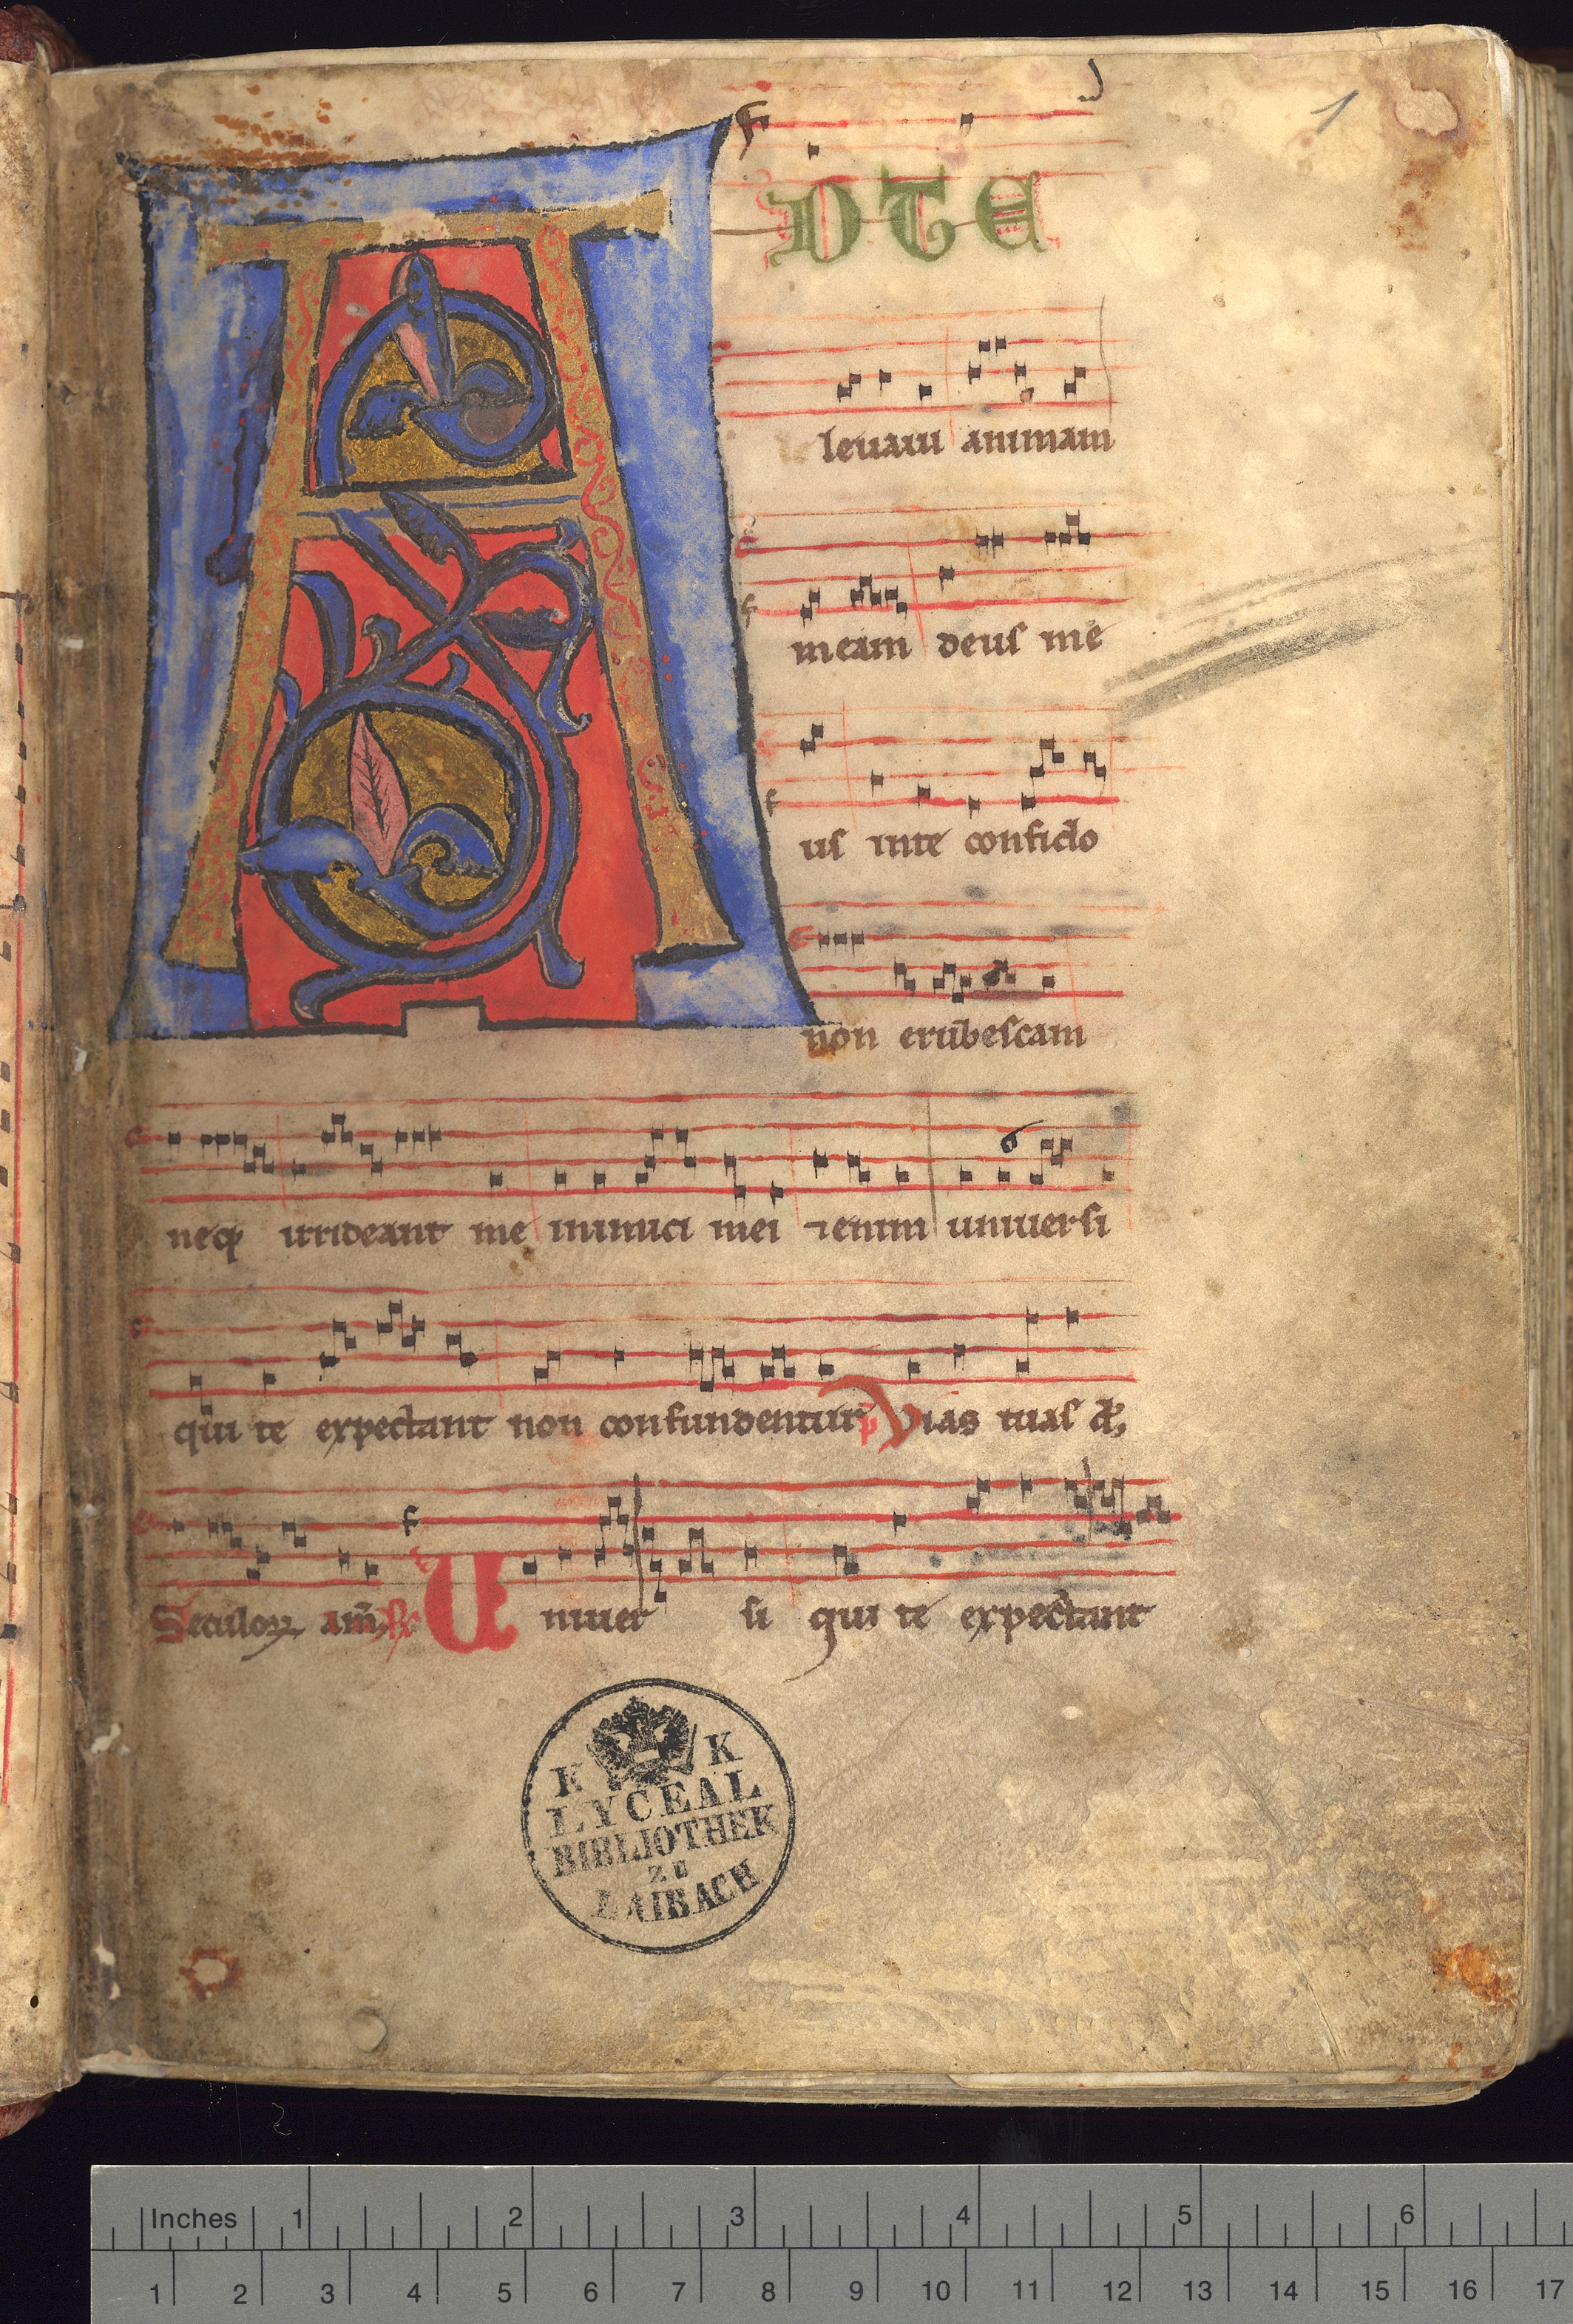 1
AD TE
levavi animam
meam deus me
us inte confido
non erubescam
neq irrideant me inimici mei ⁊enim universi
qui te expectant non confundentur p̄ Vias tuas d
Seculoꝝ am
Univer si qui te expectant
K K
LYCEAL
BIBLIOTHEK
ZU
LAIBACH
Inches 1 2 3 4 5 6
1 2 3 4 5 6 7 8 9 10 11 12 13 14 15 16 17